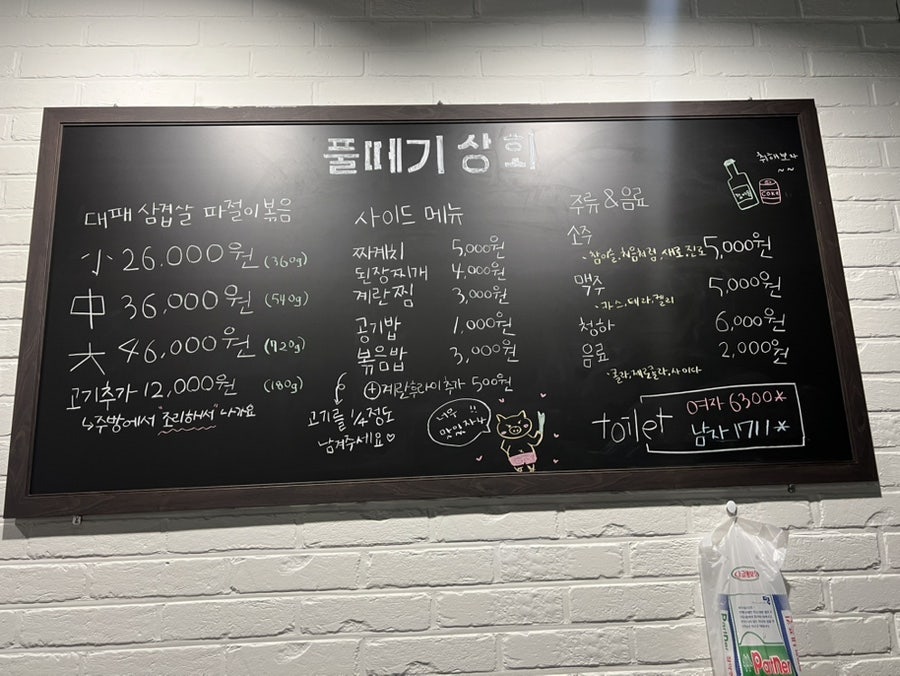 풀떼기 상회
대패 삼겹살 파절이볶음
小 26,000원 (360g)
中 36,000원 (540g)
大 46,000원 (720g)
고기추가 12,000원 (180g)
↳주방에서 "조리해서" 나가요
사이드 메뉴
짜계치 5,000원
된장찌개 4,000원
계란찜 3,000원
공기밥 1,000원
볶음밥 3,000원
⊕계랄후라이추가 500원
고기를 1/4정도
남겨주세요♡
너무 !!
맛있자나
주류&음료
취해보자
~~
소주 5,000원
·참이슬, 처음처럼, 새로, 진로
맥주 5,000원
·카스, 테라, 켈리
청하 6,000원
음료 2,000원
·콜라, 제로콜라, 사이다
COKE
toilet
여자 6300*
남자 1711*
Partner